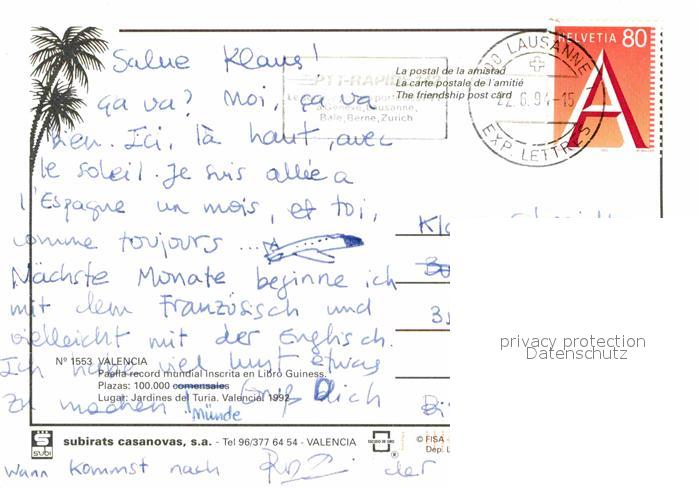 HELVETIA 80
A
LAUSANNE 1
22.6.94-15
EXP. LETTRES
Salue Klaus!
PTT-RAPID
Genève, Lausanne,
Bâle, Berne, Zurich
La postal de la amistad
La carte postale de l'amitié
The friendship post card
ça va? Moi, ça va
bien. Ici, là haut, avec
le soleil. Je suis allée a
l'Espagne un mois, et toi,
comme toujours ...
Nächste Monate beginne ich
mit dem Französisch und
vielleicht mit der Englisch.
Ich habe viel lust etwas
zu machen! Gruß Dich
Münde
Nº 1553 VALENCIA
Paella record mundial Inscrita en Libro Guiness.
Plazas: 100.000 comensales
Lugar: Jardines del Turia. Valencia 1992
privacy protection
Datenschutz
SUBI
subirats casanovas, s.a. - Tel 96/377 64 54 - VALENCIA
ESCUDO DE ORO
© FISA
Dep. L
wann kommst nach der